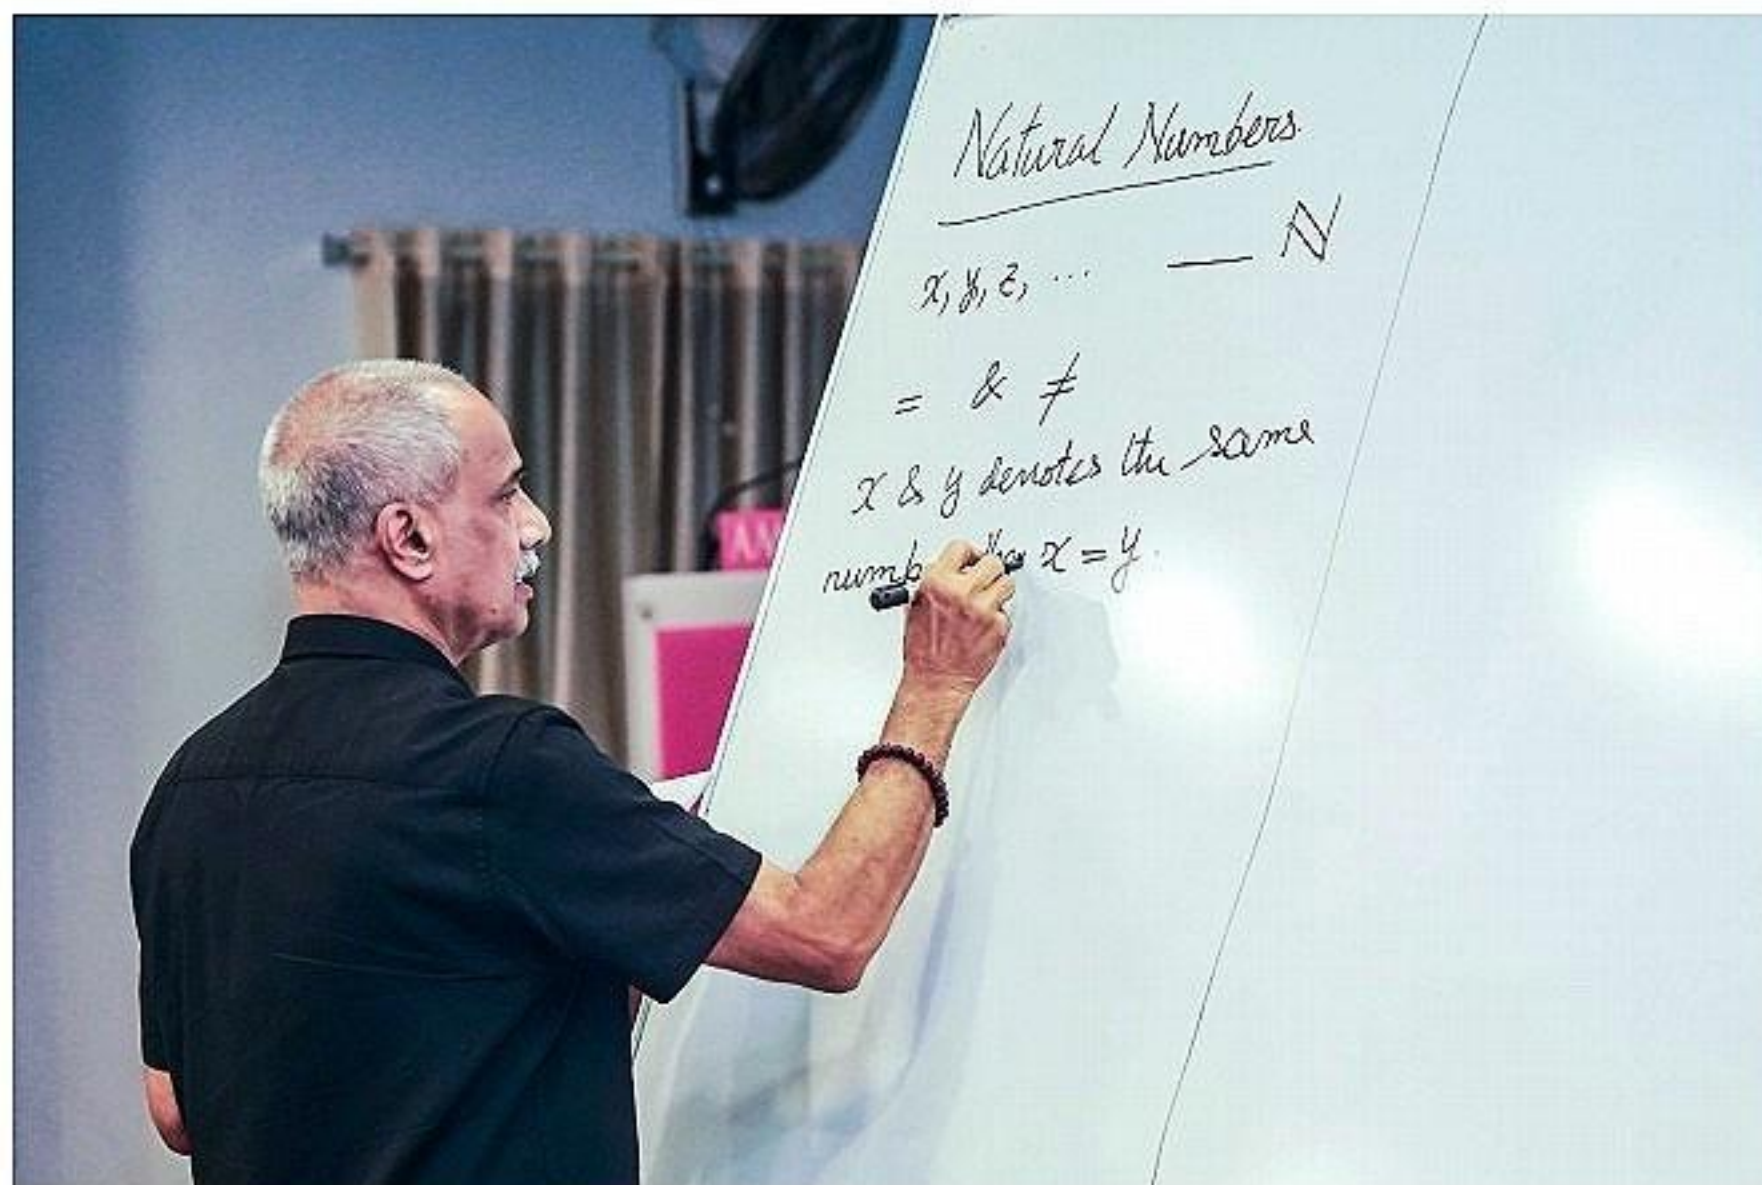 Natural Numbers.
x, y, z, ... — ℕ
= & ≠
x & y denotes the same
x = y.